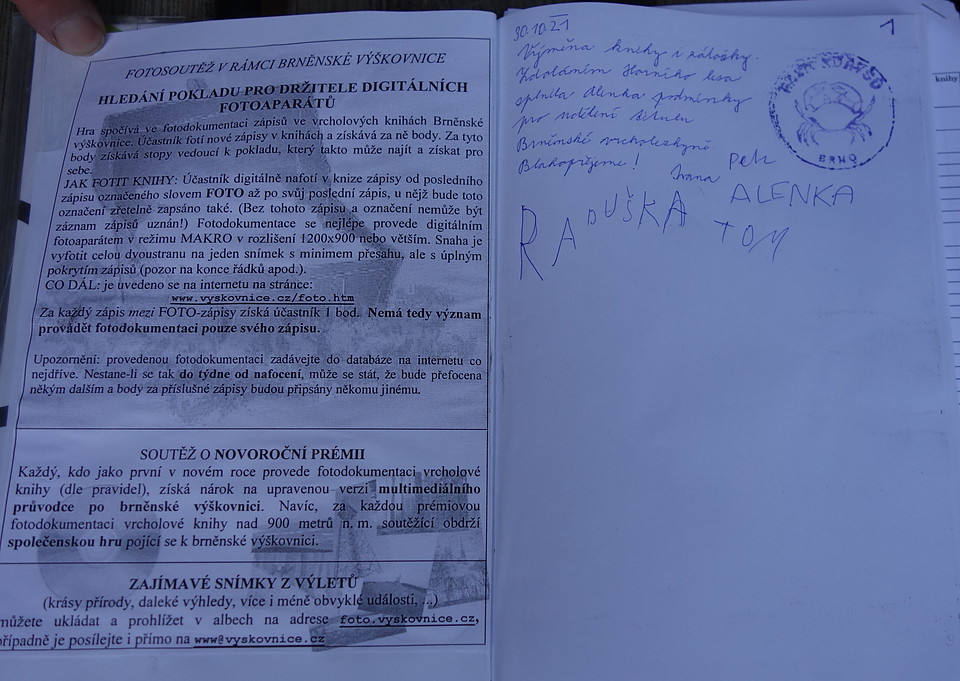 FOTOSOUTĚŽ V RÁMCI BRNĚNSKÉ VÝŠKOVNICE
HLEDÁNÍ POKLADU PRO DRŽITELE DIGITÁLNÍCH
FOTOAPARÁTŮ
Hra spočívá ve fotodokumentaci zápisů ve vrcholových knihách Brněnské
výškovnice. Účastník fotí nové zápisy v knihách a získává za ně body. Za tyto
body získává stopy vedoucí k pokladu, který takto může najít a získat pro
sebe.
JAK FOTIT KNIHY: Účastník digitálně nafotí v knize zápisy od posledního
zápisu označeného slovem FOTO až po svůj poslední zápis, u nějž bude toto
označení zřetelně zapsáno také. (Bez tohoto zápisu a označení nemůže být
záznam zápisů uznán!) Fotodokumentace se nejlépe provede digitálním
fotoaparátem v režimu MAKRO v rozlišení 1200x900 nebo větším. Snaha je
vyfotit celou dvoustranu na jeden snímek s minimem přesahu, ale s úplným
pokrytím zápisů (pozor na konce řádků apod.).
CO DÁL: je uvedeno se na internetu na stránce:
www.vyskovnice.cz/foto.htm
Za každý zápis mezi FOTO-zápisy získá účastník 1 bod. Nemá tedy význam
provádět fotodokumentaci pouze svého zápisu.
Upozornění: provedenou fotodokumentaci zadávejte do databáze na internetu co
nejdříve. Nestane-li se tak do týdne od nafocení, může se stát, že bude přefocena
někým dalším a body za příslušné zápisy budou připsány někomu jinému.
SOUTĚŽ O NOVOROČNÍ PRÉMII
Každý, kdo jako první v novém roce provede fotodokumentaci vrcholové
knihy (dle pravidel), získá nárok na upravenou verzi multimediálního
průvodce po brněnské výškovnici. Navíc, za každou prémiovou
fotodokumentaci vrcholové knihy nad 900 metrů n. m. soutěžící obdrží
společenskou hru pojící se k brněnské výškovnici.
ZAJÍMAVÉ SNÍMKY Z VÝLETŮ
(krásy přírody, daleké výhledy, více i méně obvyklé události, ...)
můžete ukládat a prohlížet v albech na adrese foto.vyskovnice.cz,
případně je posílejte i přímo na www@vyskovnice.cz
30.10.21
1
Výměna knihy i záložky.
Zdoláním Horního lesa
splnila Alenka podmínky
pro udělení titulu
Brněnské vrcholeskyně
Blahopřejeme!
Ivana Petr
ALENKA
RADUŠKA
TOM
BRNO
knihy